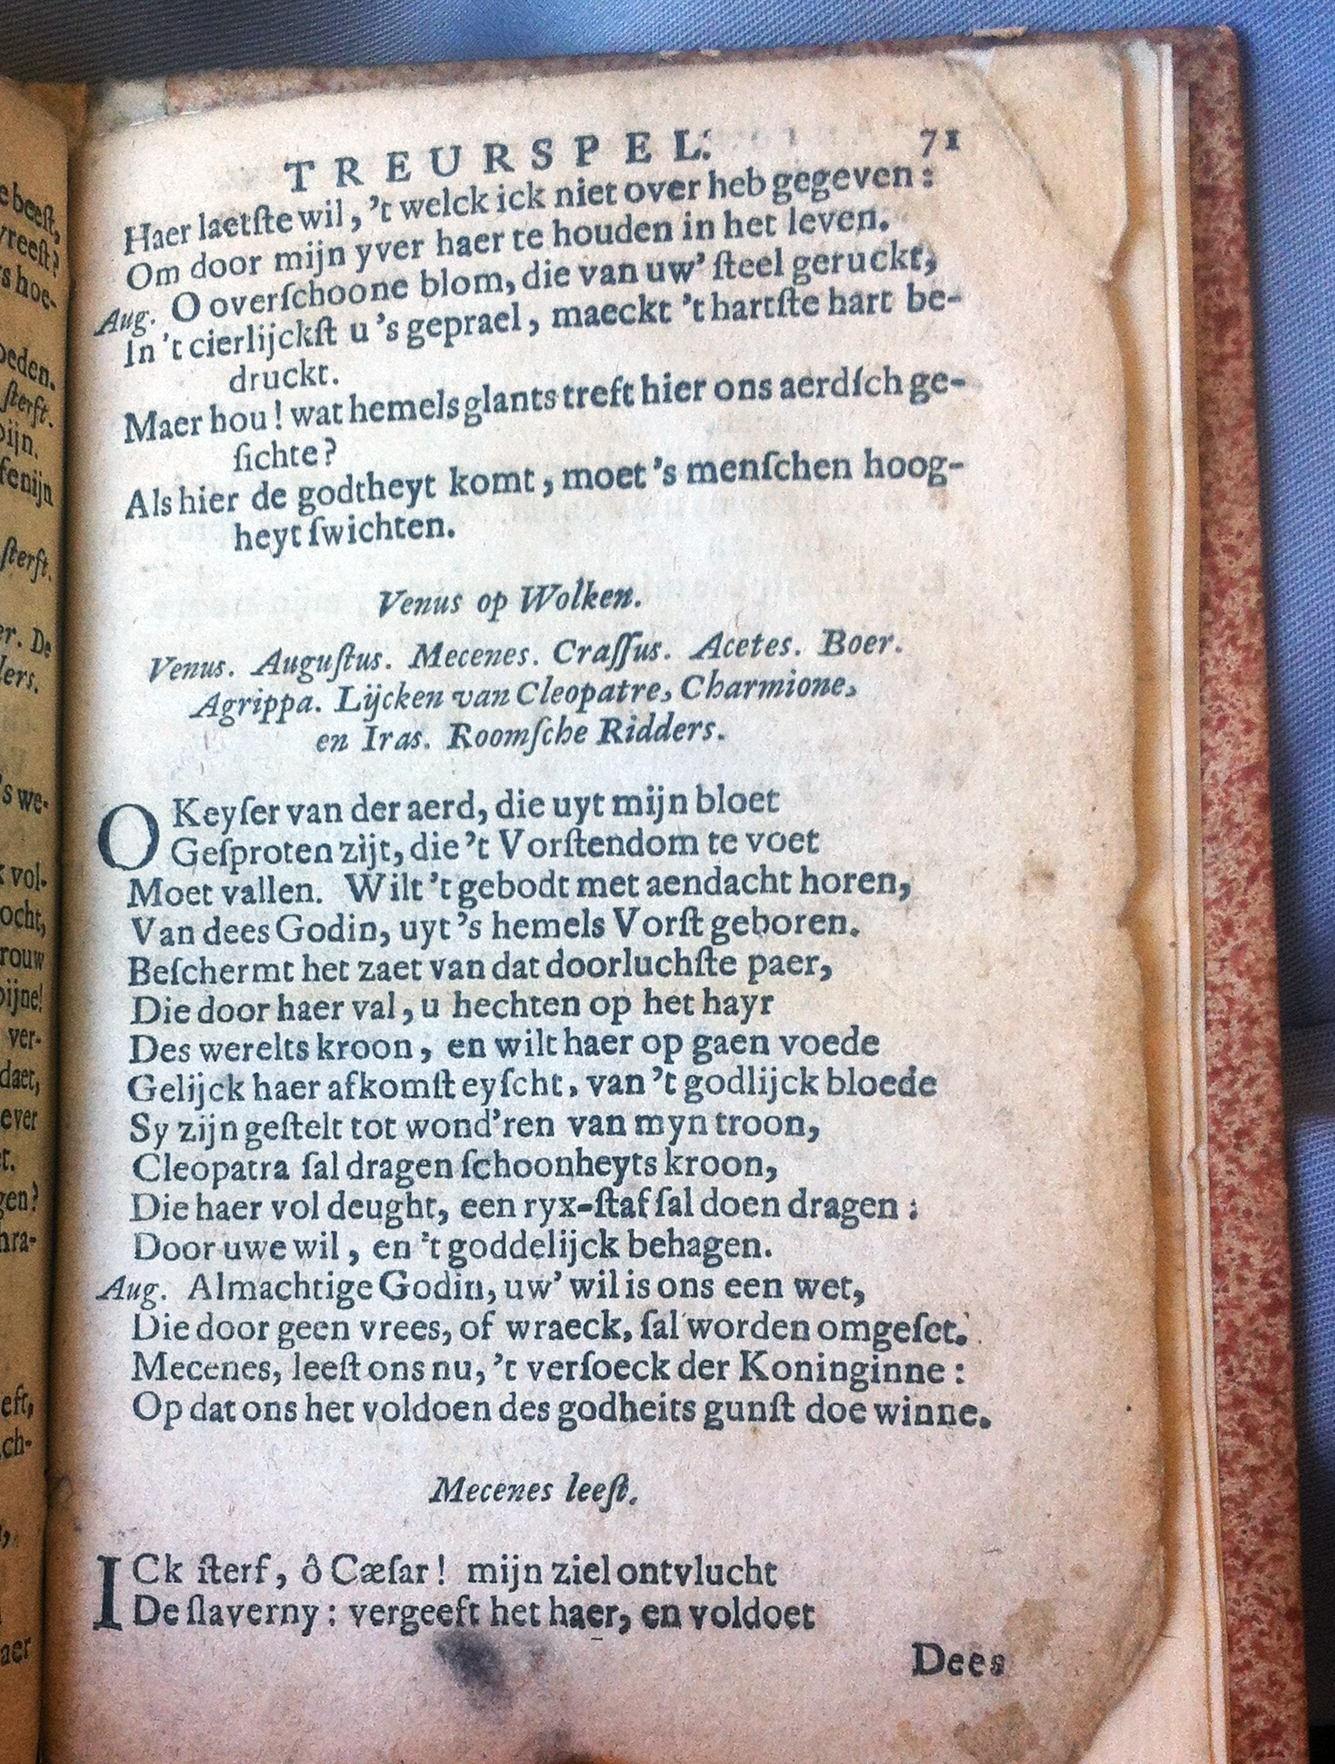 TREURSPEL. 71
Haer laetſte wil, 't welck ick niet over heb gegeven:
Om door mijn yver haer te houden in het leven.
Aug. O overſchoone blom, die van uw' ſteel geruckt,
In 't cierlijckſt u 's geprael, maeckt 't hartſte hart be-
druckt.
Maer hou! wat hemels glants treft hier ons aerdſch ge-
ſichte?
Als hier de godtheyt komt, moet 's menſchen hoog-
heyt ſwichten.
Venus op Wolken.
Venus. Auguſtus. Mecenes. Craſſus. Acetes. Boer.
Agrippa. Lijcken van Cleopatre, Charmione,
en Iras. Roomſche Ridders.
O Keyſer van der aerd, die uyt mijn bloet
Geſproten zijt, die 't Vorſtendom te voet
Moet vallen. Wilt 't gebodt met aendacht horen,
Van dees Godin, uyt 's hemels Vorſt geboren.
Beſchermt het zaet van dat doorluchſte paer,
Die door haer val, u hechten op het hayr
Des werelts kroon, en wilt haer op gaen voede
Gelijck haer afkomſt eyſcht, van 't godlijck bloede
Sy zijn geſtelt tot wond'ren van myn troon,
Cleopatra ſal dragen ſchoonheyts kroon,
Die haer vol deught, een ryx-ſtaf ſal doen dragen:
Door uwe wil, en 't goddelijck behagen.
Aug. Almachtige Godin, uw' wil is ons een wet,
Die door geen vrees, of wraeck, ſal worden omgeſet.
Mecenes, leeſt ons nu, 't verſoeck der Koninginne:
Op dat ons het voldoen des godheits gunſt doe winne.
Mecenes leeſt.
ICk ſterf, ô Cæſar! mijn ziel ontvlucht
De ſlaverny: vergeeft het haer, en voldoet
Dees